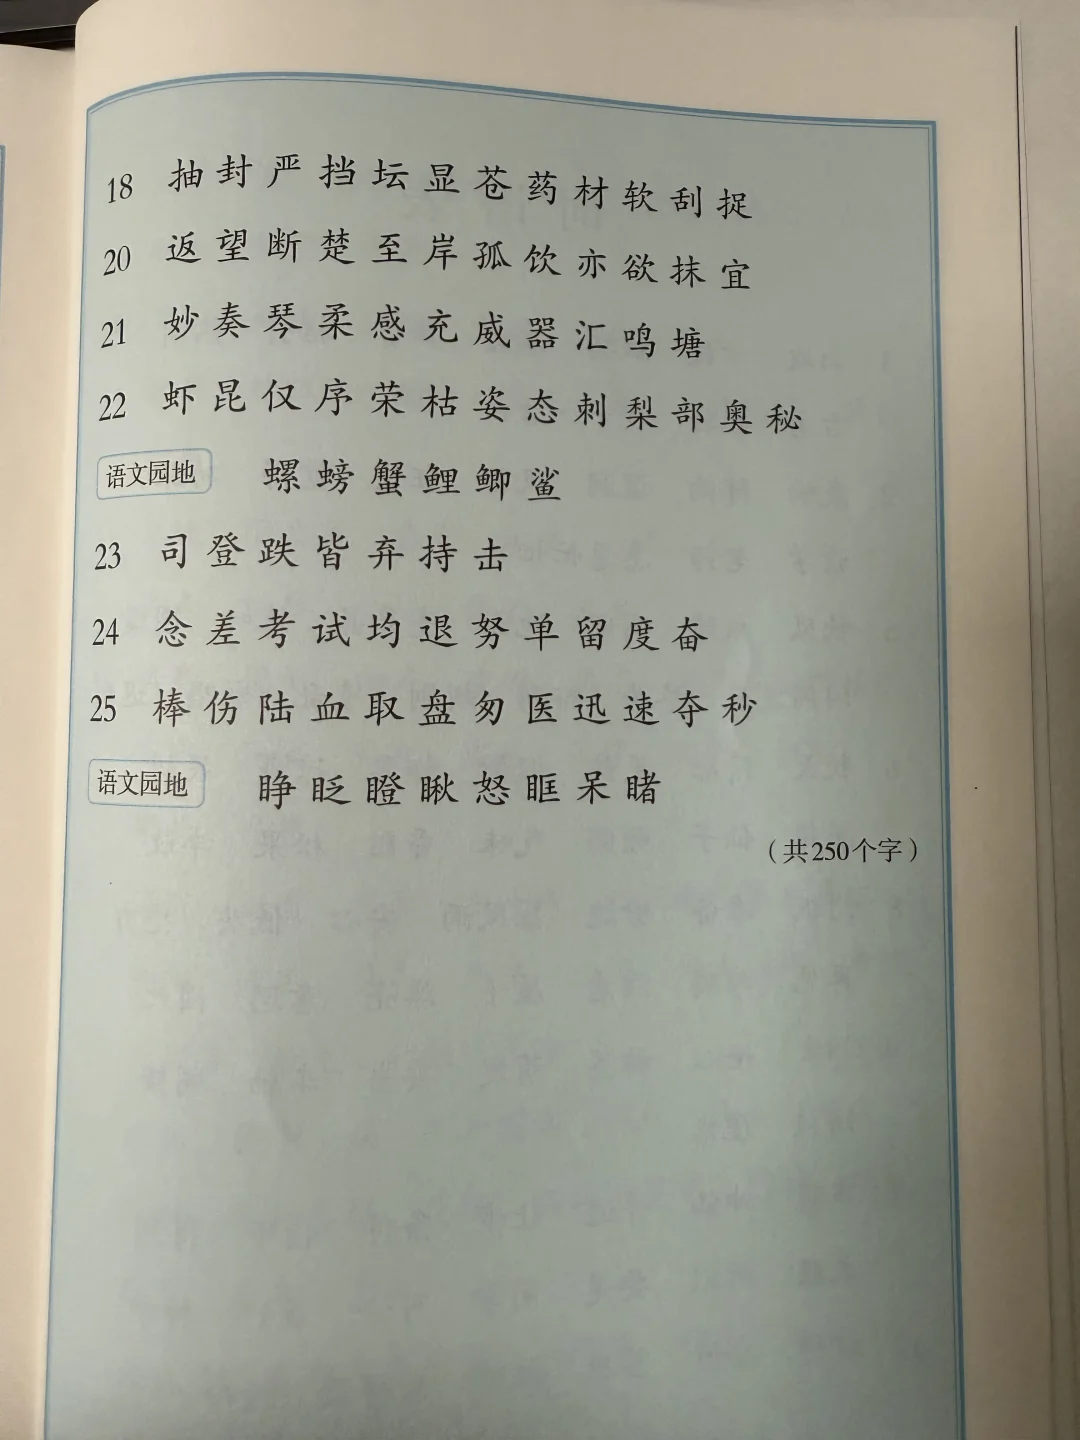 18 抽 封 严 挡 坛 显 苍 药 材 软 刮 捉
20 返 望 断 楚 至 岸 孤 饮 亦 欲 抹 宜
21 妙 奏 琴 柔 感 充 威 器 汇 鸣 塘
22 虾 昆 仅 序 荣 枯 姿 态 刺 梨 部 奥 秘
语文园地 螺 螃 蟹 鲤 鲫 鲨
23 司 登 跌 皆 弃 持 击
24 念 差 考 试 均 退 努 单 留 度 奋
25 棒 伤 陆 血 取 盘 匆 医 迅 速 夺 秒
语文园地 睁 眨 瞪 瞅 怒 眶 呆 睹
（共250个字）